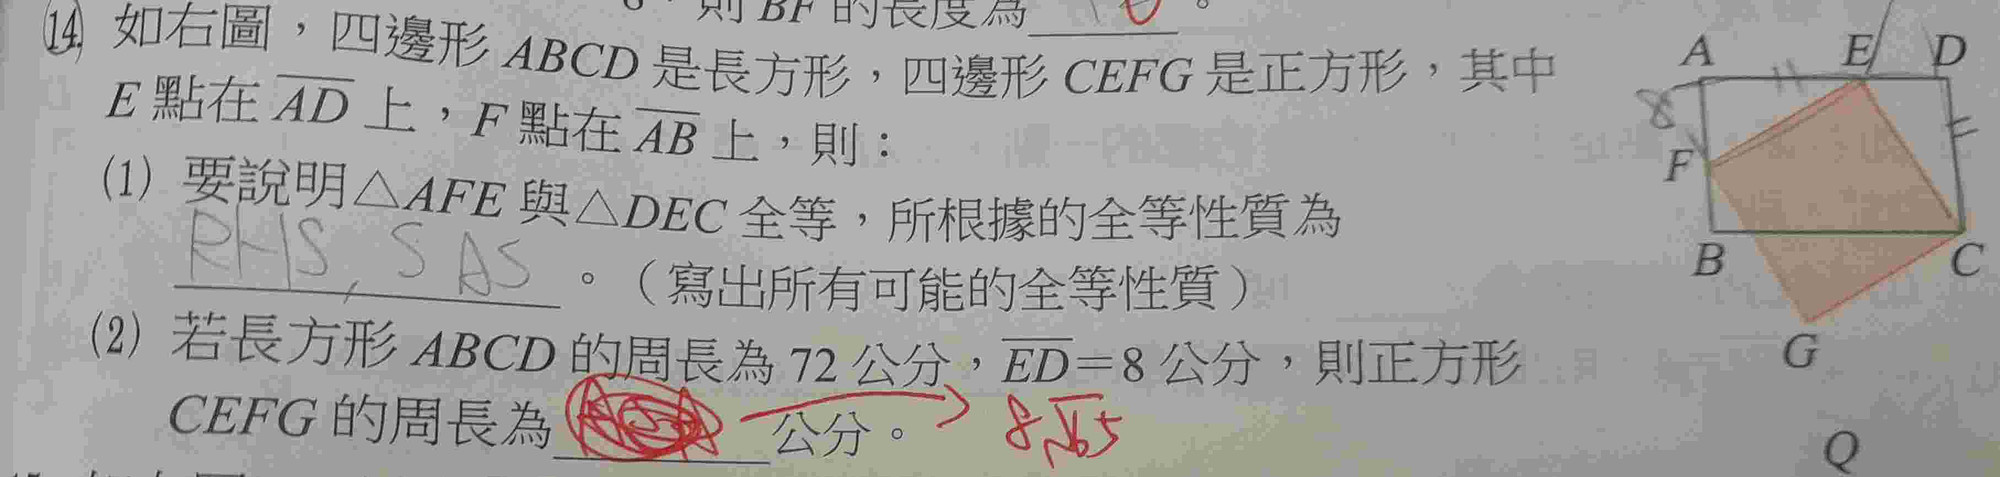 則 BF 的長度為
(14) 如右圖，四邊形 ABCD 是長方形，四邊形 CEFG 是正方形，其中
E 點在 AD 上，F 點在 AB 上，則：
(1) 要說明△AFE 與△DEC 全等，所根據的全等性質為
RHS, SAS 。（寫出所有可能的全等性質）
(2) 若長方形 ABCD 的周長為 72 公分，ED=8 公分，則正方形
CEFG 的周長為 公分。 8√65
A E D
8
F
B C
G
Q